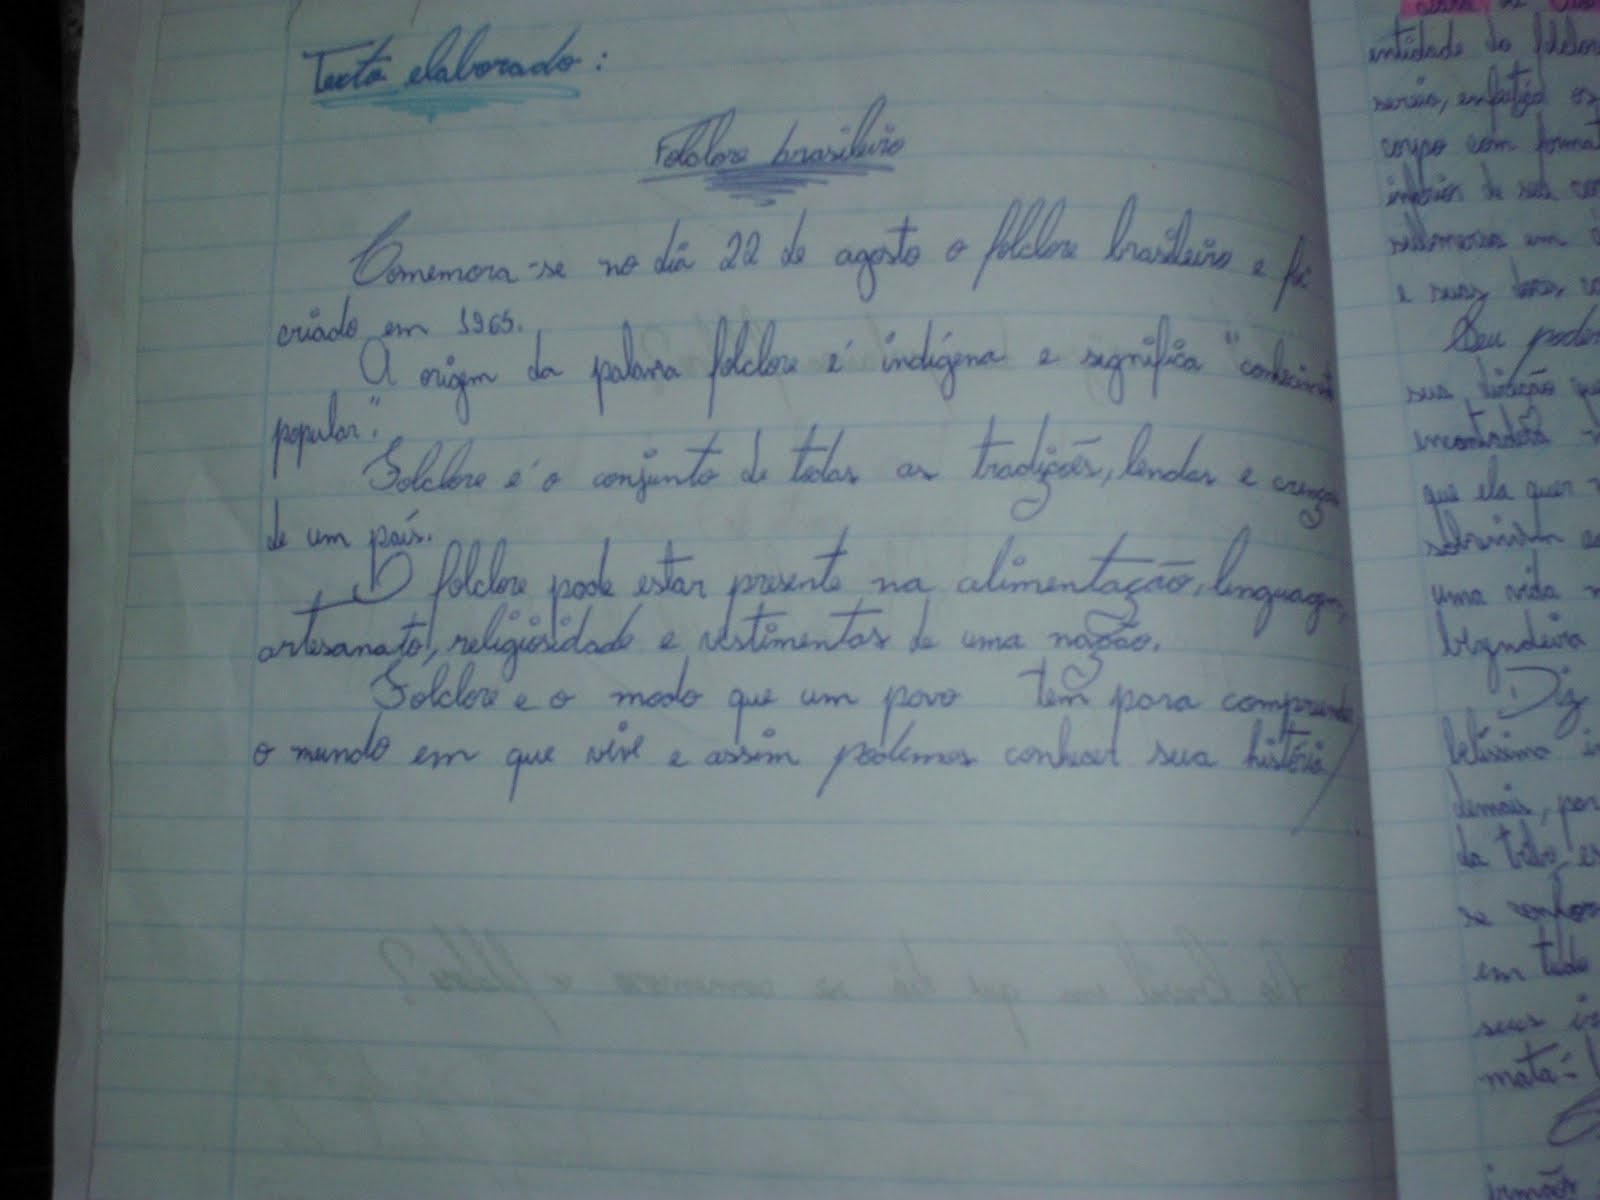 Texto elaborado:
Folclore brasileiro
Comemora-se no dia 22 de agosto o folclore brasileiro e foi
criado em 1965.
A origem da palavra folclore é indígena e significa "conhecimento
popular".
Folclore é o conjunto de todas as tradições, lendas e crenças
de um país.
O folclore pode estar presente na alimentação, linguagem,
artesanato, religiosidade e vestimentas de uma nação.
Folclore e o modo que um povo tem para compreender
o mundo em que vive e assim podemos conhecer sua história
entidade do folclore
sereia, enfeitiça os
corpo com forma
inferior de seu
e suas
Seu poder
sua direção que
que ela quer
uma vida
Diz
belíssimo
demais, por
da tribo, es
se
em tudo
seus ir
mata-
irmãos